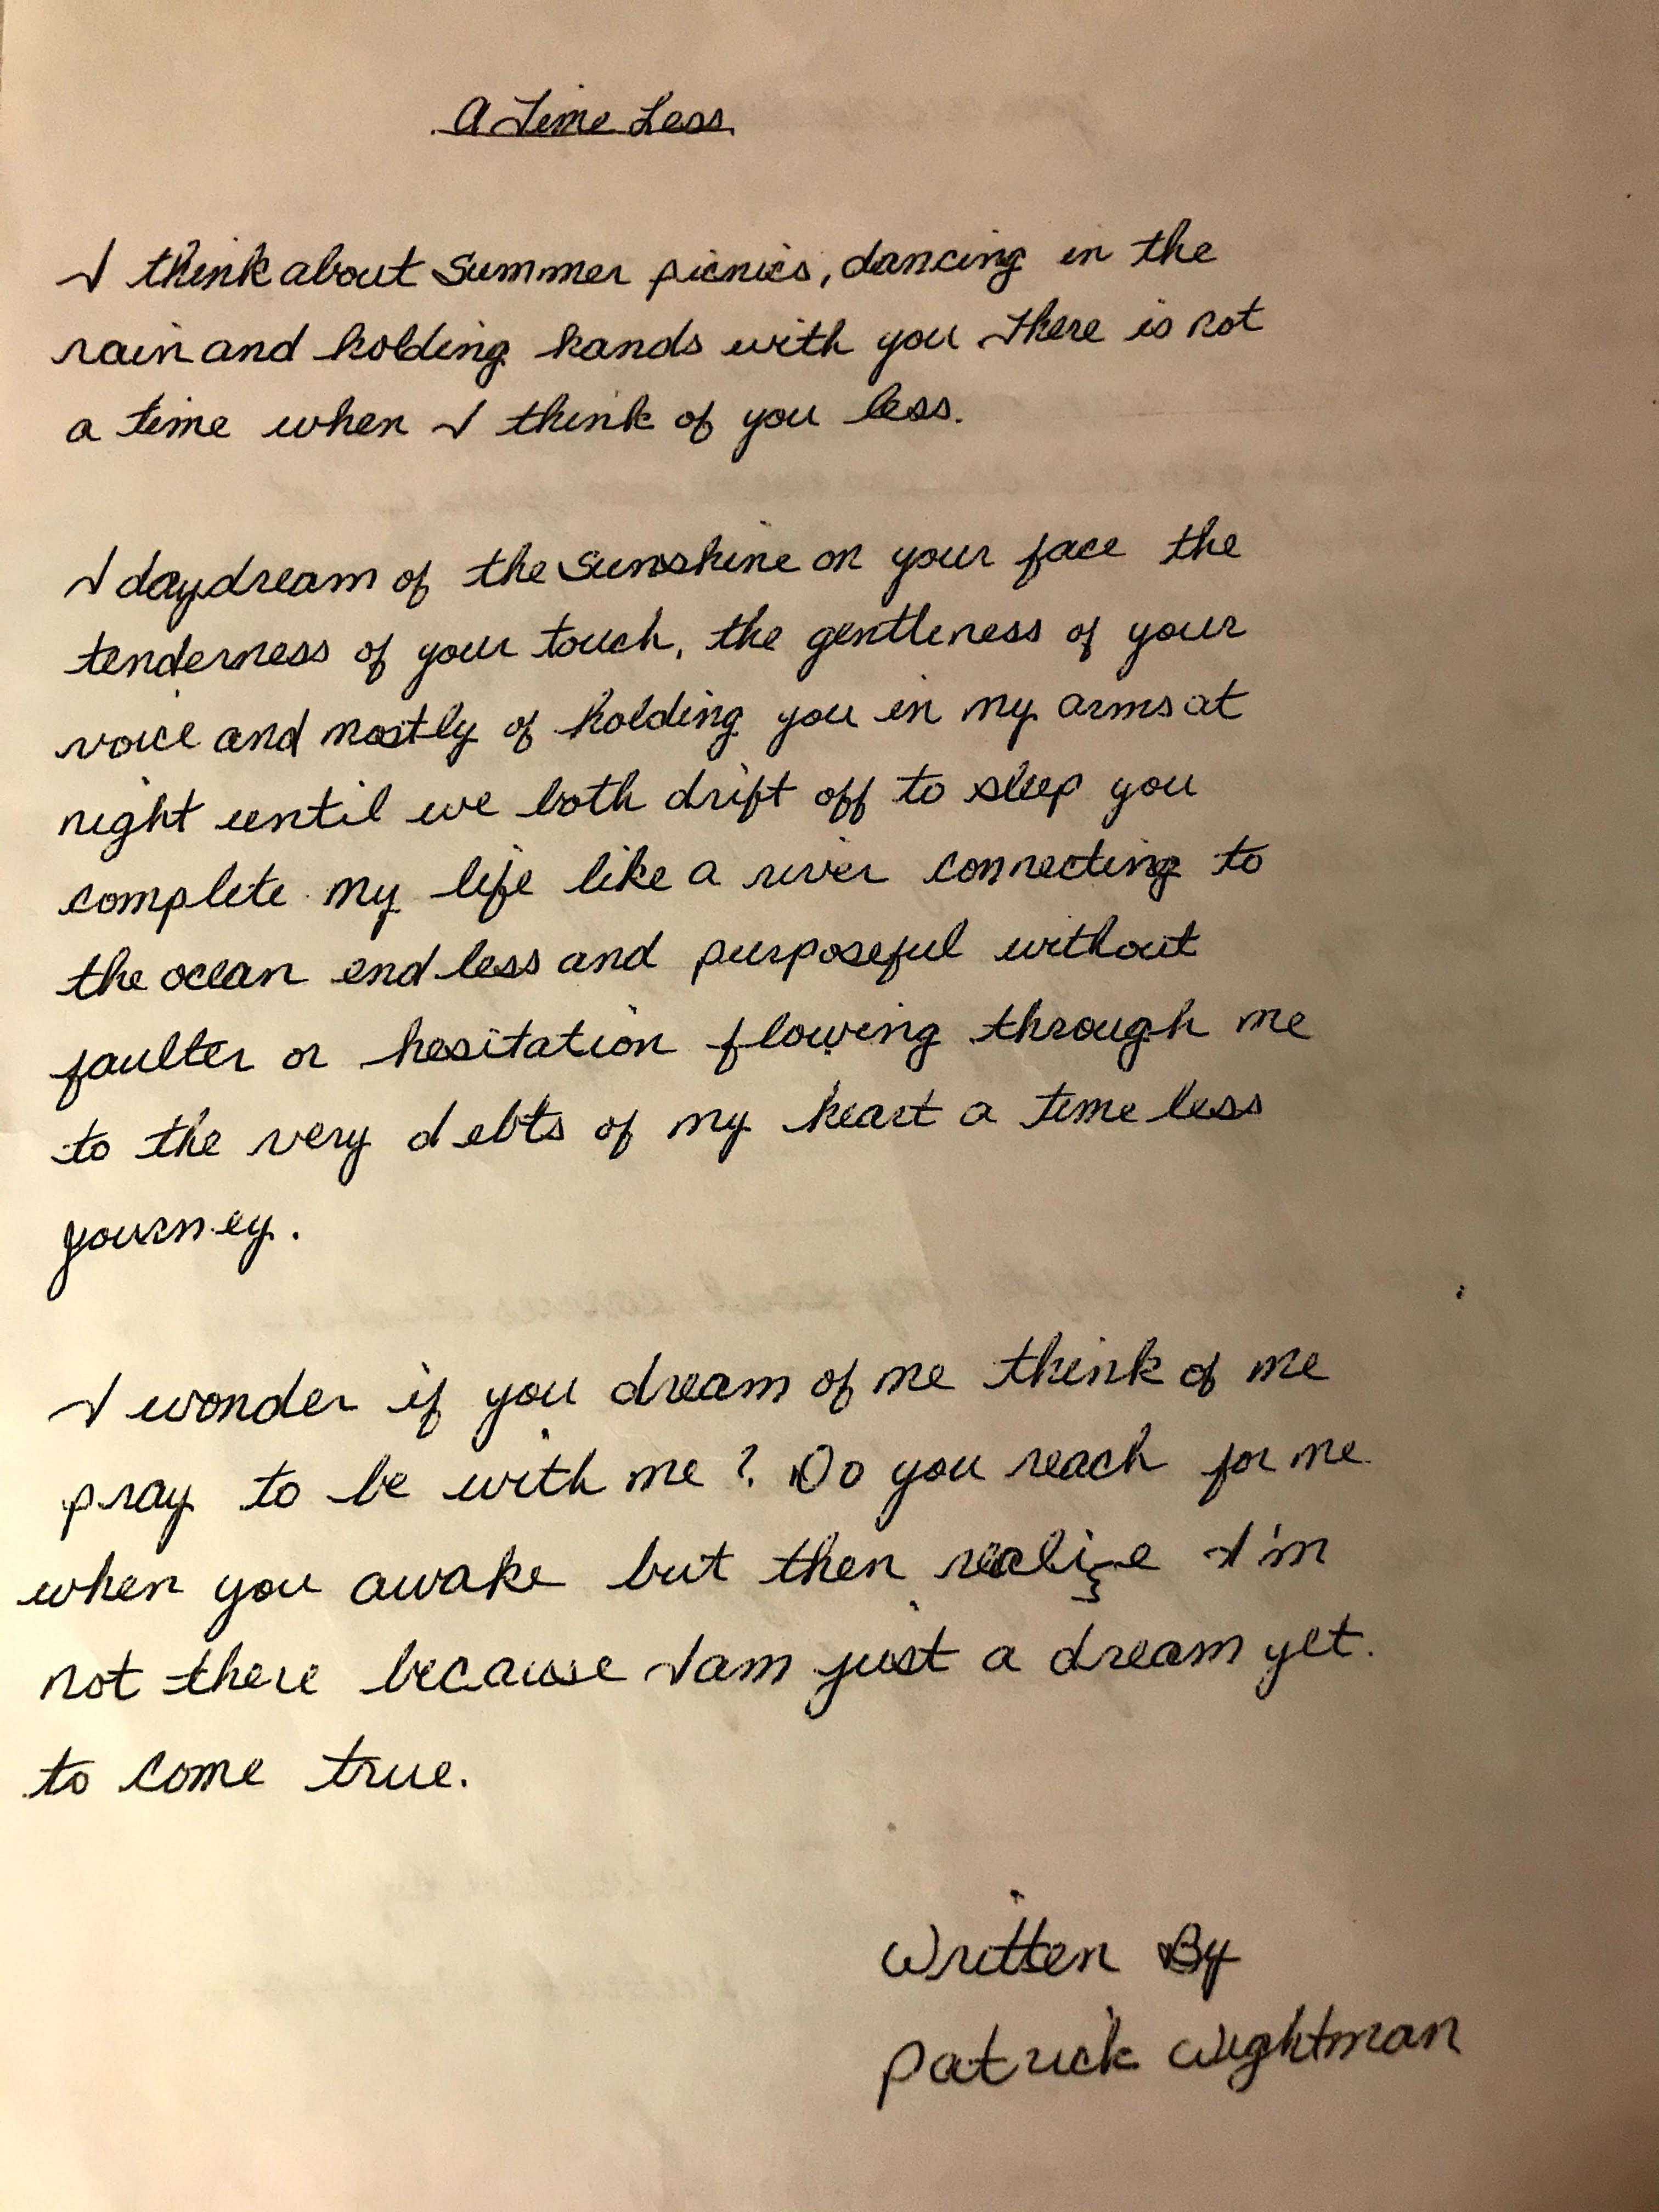 A Time Less
I think about Summer picnics, dancing in the
rain and holding hands with you There is not
a time when I think of you less.
I daydream of the sunshine on your face the
tenderness of your touch, the gentleness of your
voice and mostly of holding you in my arms at
night until we both drift off to sleep you
complete my life like a river connecting to
the ocean endless and purposeful without
faulter or hesitation flowing through me
to the very debts of my heart a time less
journey.
I wonder if you dream of me think of me
pray to be with me? Do you reach for me
when you awake but then realize I'm
not there because I am just a dream yet.
to come true.
Written By
Patrick Wightman